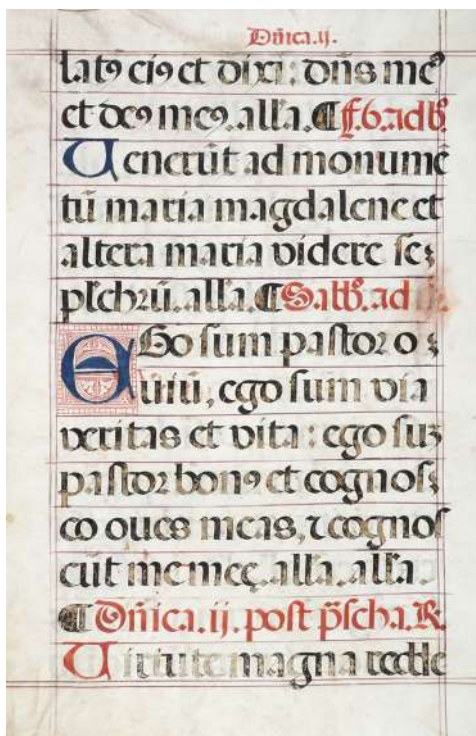 Dñica.ij.
latꝯ eiꝯ et dixi: dñs meꝰ
et deꝯ meꝯ. alla. ¶ f.6. ad b̃.
Venerũt ad monumẽ
tũ maria magdalene et
altera maria videre se⹎
pl̃chrũ. alla. ¶ Sabb̃. ad
EGo sum pastor o⹎
uiũ, ego sum via
veritas et vita: ego suꝫ
pastor bonꝯ et cognos⹎
co oues meas, ⁊ cognos
cũt me meę. alla. alla.
¶ Dñica. ij. post p̃scha. R.
Virtute magna redde